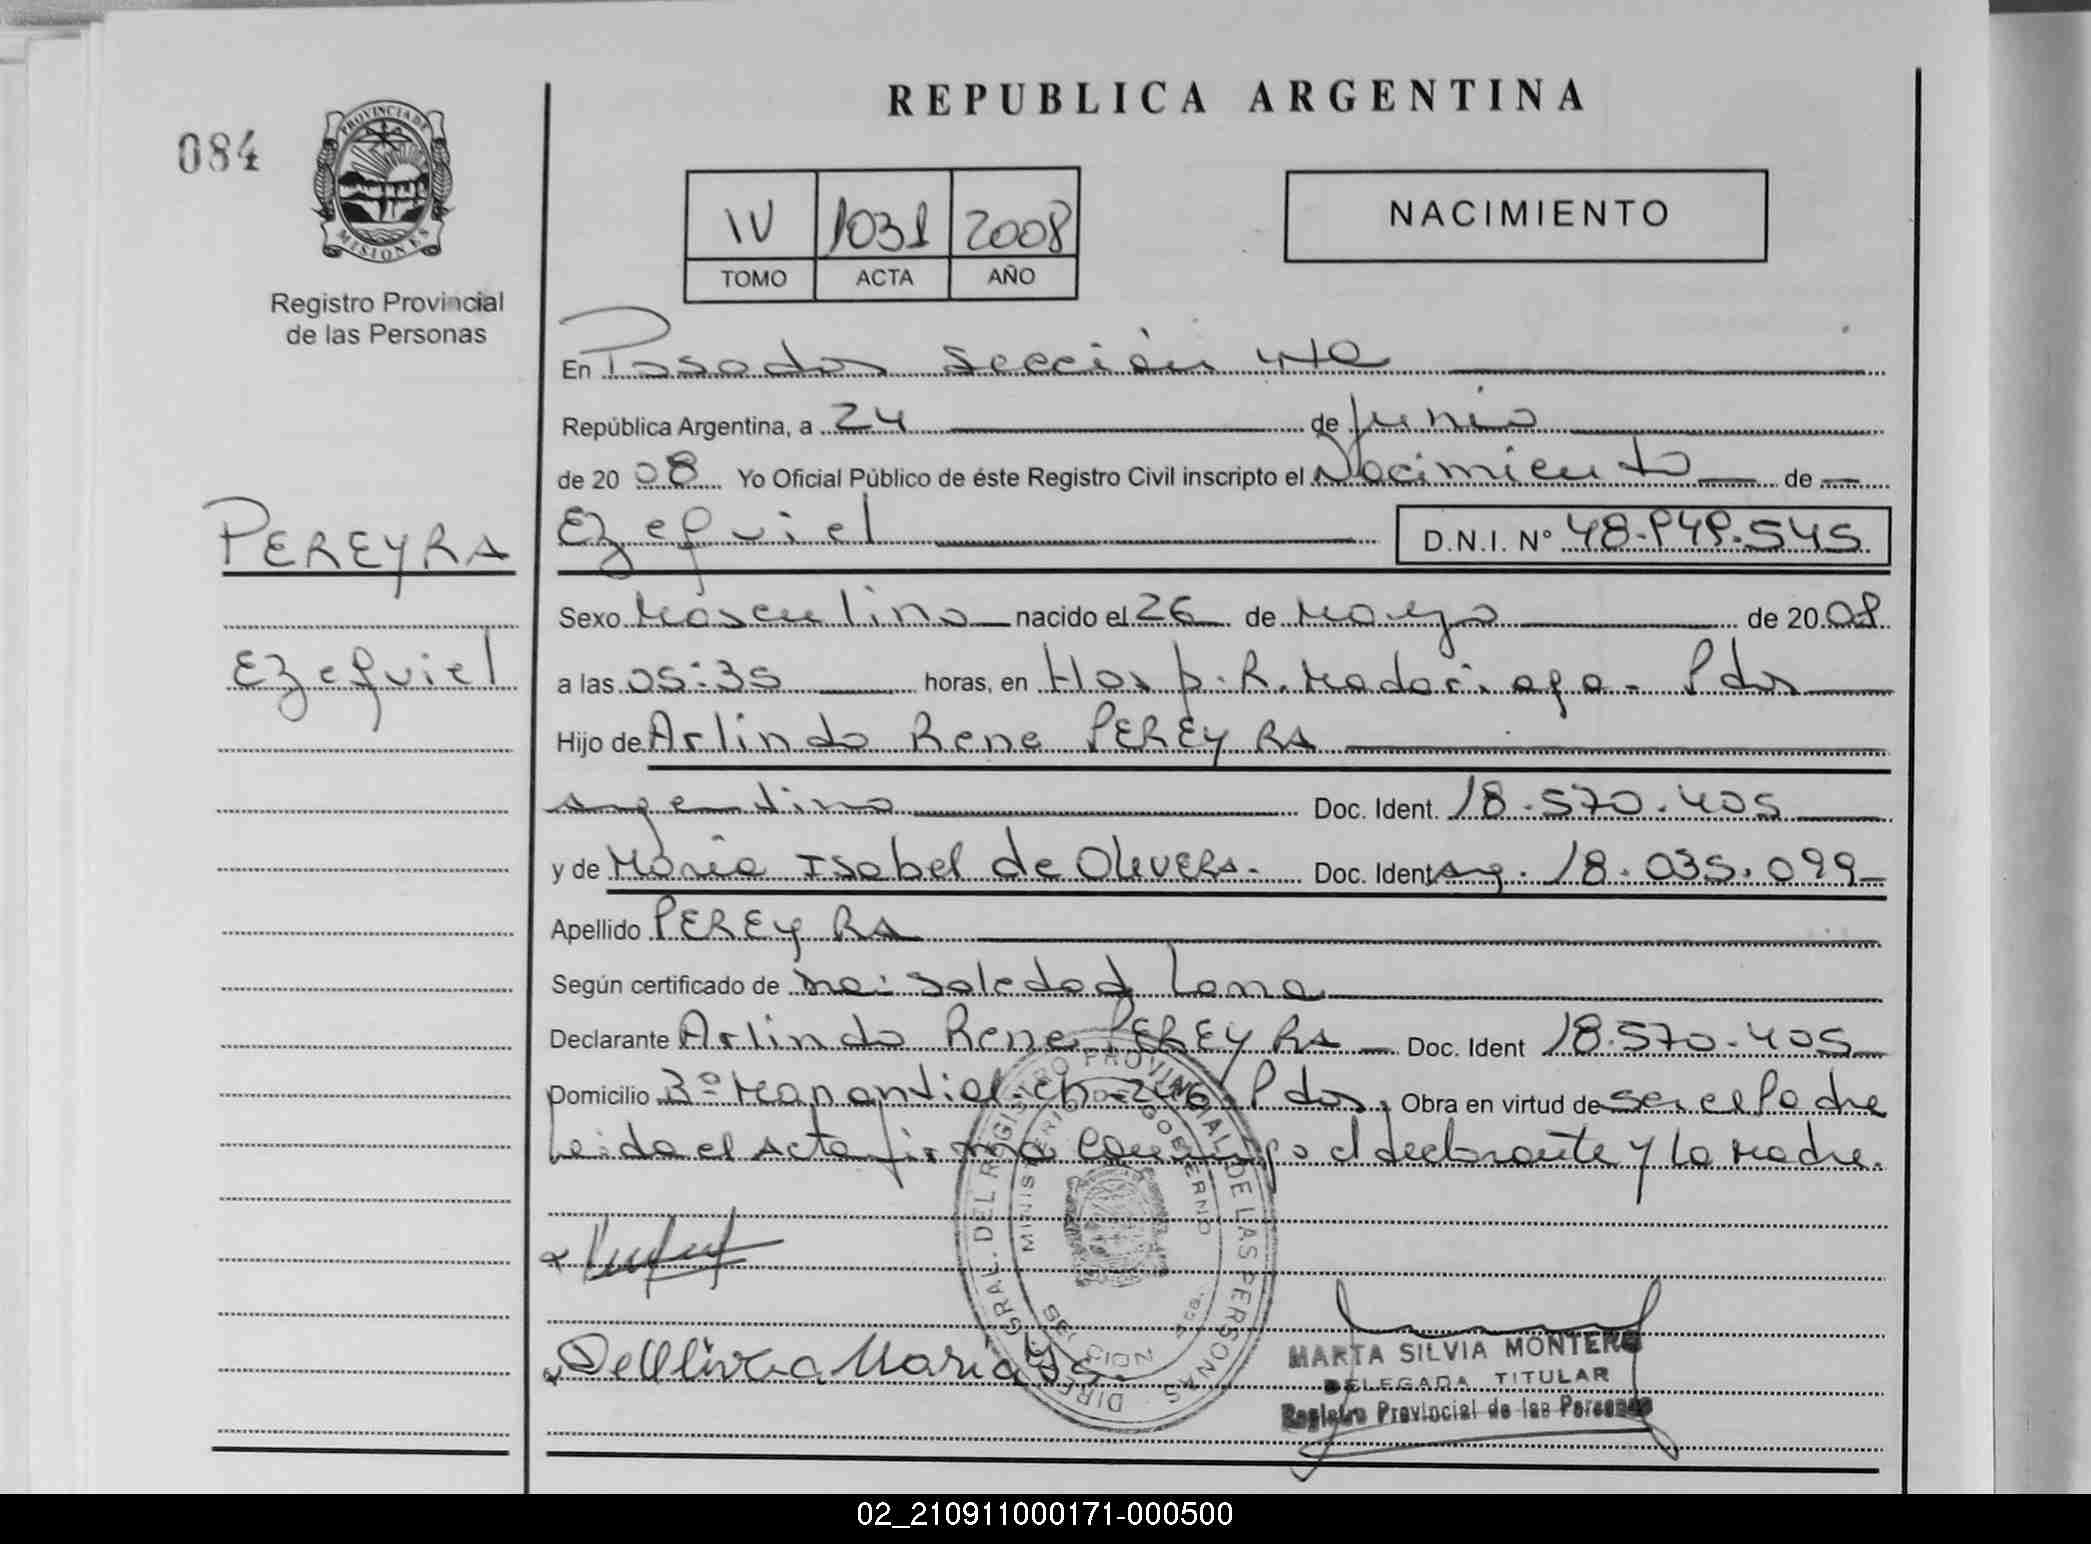 REPUBLICA ARGENTINA
084
PROVINCIA DE
MISIONES
Registro Provincial
de las Personas
IV 1031 2008
TOMO ACTA AÑO
NACIMIENTO
En Posadas Sección 4ta
República Argentina, a 24 de Junio
de 20 08 Yo Oficial Público de éste Registro Civil inscripto el Nacimiento de
PEREYRA
Ezequiel
Ezequiel D.N.I. Nº 48.949.545
Sexo Masculino nacido el 26 de Mayo de 20 08
a las 05:35 horas, en Hosp. R. Madariaga - Pdas
Hijo de Arlindo Rene PEREYRA
argentino Doc. Ident. 18.570.405
y de María Isabel de Olivera - Doc. Ident Arg. 18.035.099
Apellido PEREYRA
Según certificado de Soledad
Declarante Arlindo Rene PEREYRA Doc. Ident 18.570.405
Domicilio Bº Manantial ch-246 Pdas, Obra en virtud de ser el Padre
Leida el Acta firma conmigo el declarante y la Madre.
DIRE GRAL. DEL REGISTRO PROVINCIAL DE LAS PERSONAS
MINISTERIO DE GOBIERNO
De Olivera Maria Is.
MARTA SILVIA MONTERO
DELEGADA TITULAR
Registro Provincial de las Personas
02_210911000171-000500